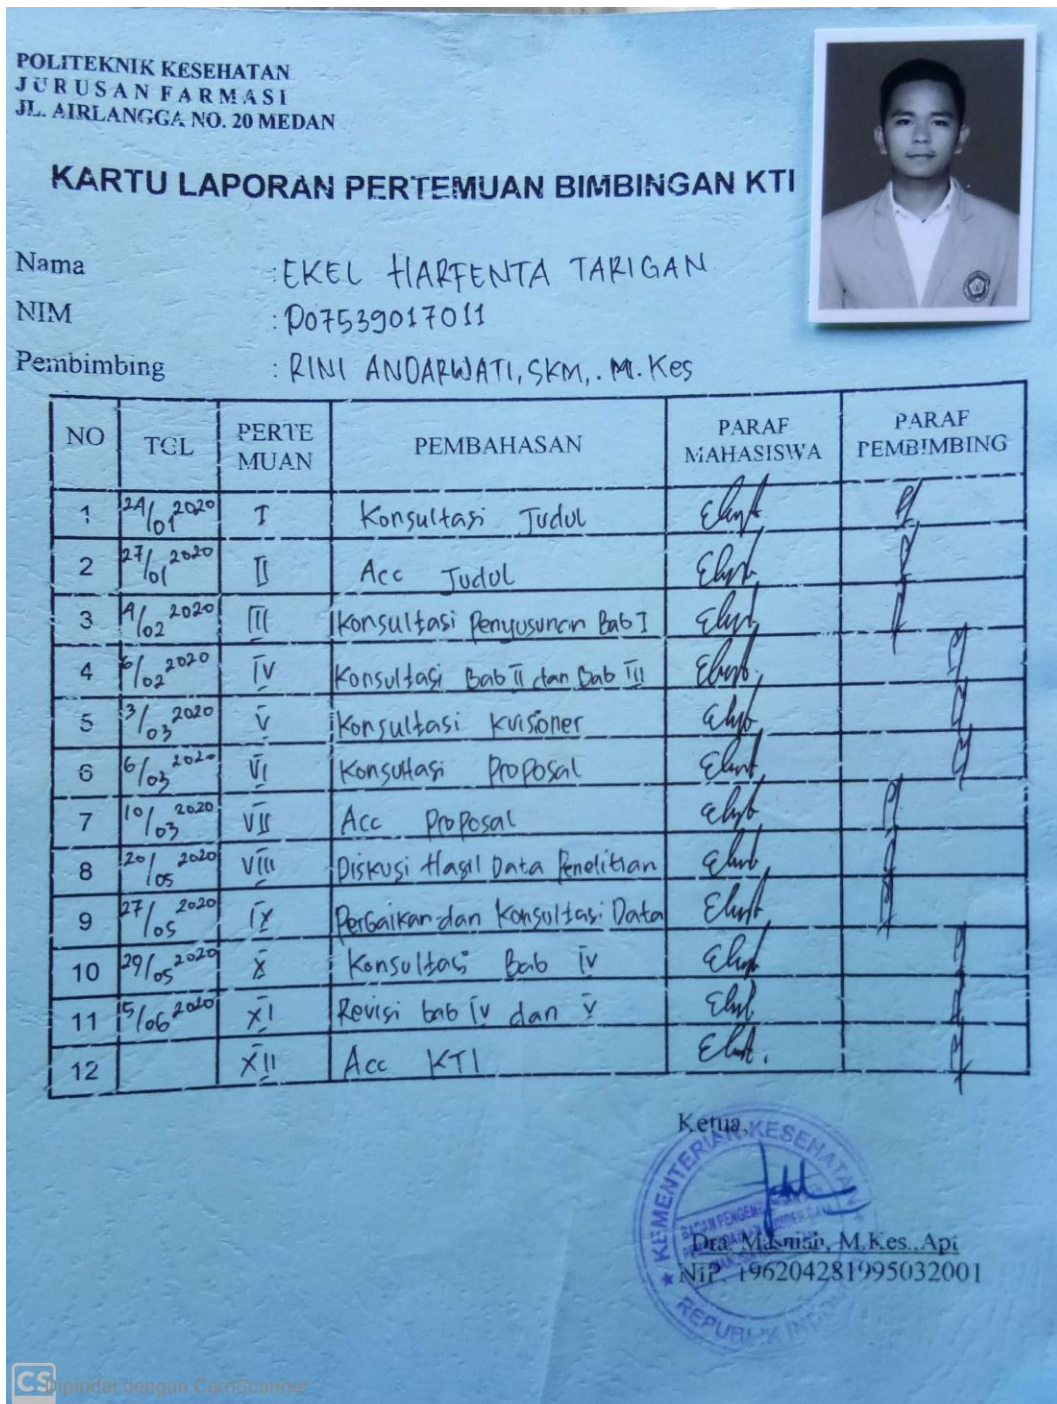 POLITEKNIK KESEHATAN
JURUSAN FARMASI
JL. AIRLANGGA NO. 20 MEDAN
KARTU LAPORAN PERTEMUAN BIMBINGAN KTI
Nama : EKEL HARFENTA TARIGAN
NIM : P07539017011
Pembimbing : RINI ANDARWATI, SKM,. M.Kes
NO TGL PERTE MUAN PEMBAHASAN PARAF MAHASISWA PARAF PEMBIMBING
1 24/01 2020 I Konsultasi Judul
2 27/01 2020 II Acc Judul
3 4/02 2020 III Konsultasi Penyusunan Bab I
4 6/02 2020 IV Konsultasi Bab II dan Bab III
5 3/03 2020 V Konsultasi kuisioner
6 6/03 2020 VI Konsultasi Proposal
7 10/03 2020 VII Acc Proposal
8 20/05 2020 VIII Diskusi Hasil Data Penelitian
9 27/05 2020 IX Perbaikan dan Konsultasi Data
10 29/05 2020 X Konsultasi Bab IV
11 15/06 2020 XI Revisi bab IV dan V
12 XII Acc KTI
Ketua,
KEMENTERIAN KESEHATAN
BADAN
Dra. Masniah, M.Kes., Apt
NIP. 196204281995032001
REPUBLIK
CS Dipindai dengan CamScanner